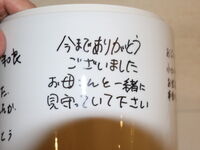 今までありがとう
ございました
お母さんと一緒に
見守っていて下さい